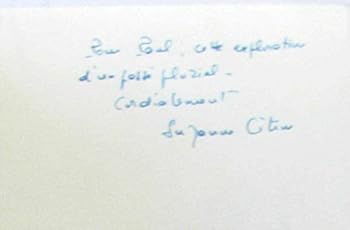 Pour Paul, cette exploration
d'un passé pluriel -
Cordialement
Suzanne Citron